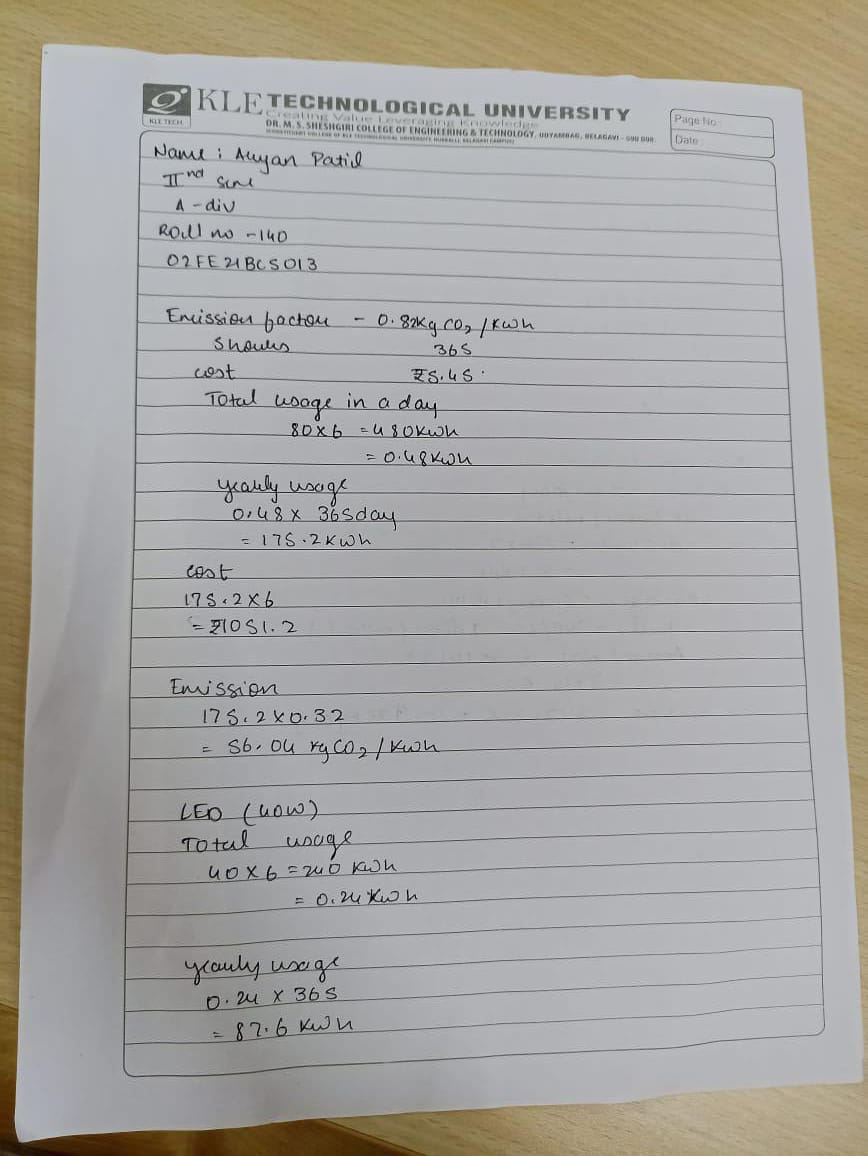 KLE TECH
KLE TECHNOLOGICAL UNIVERSITY
Creating Value Leveraging Knowledge
DR. M. S. SHESHGIRI COLLEGE OF ENGINEERING & TECHNOLOGY, UDYAMBAG, BELAGAVI - 590 008.
Page No
Date
Name : Aryan Patil
IInd sem
A - div
Roll no - 140
02FE21BCS013
Emission factor - 0.82Kg CO2 / Kwh
5 hours 365
cost ₹5.45
Total usage in a day
80 x 6 = 480 Kwh
= 0.48 Kwh
yearly usage
0.48 x 365 day
= 175.2 Kwh
cost
175.2 x 6
= ₹1051.2
Emission
175.2 x 0.32
= 56.04 Kg CO2 / Kwh
LED (40W)
Total usage
40 x 6 = 240 Kwh
= 0.24 Kwh
yearly usage
0.24 x 365
= 87.6 Kwh